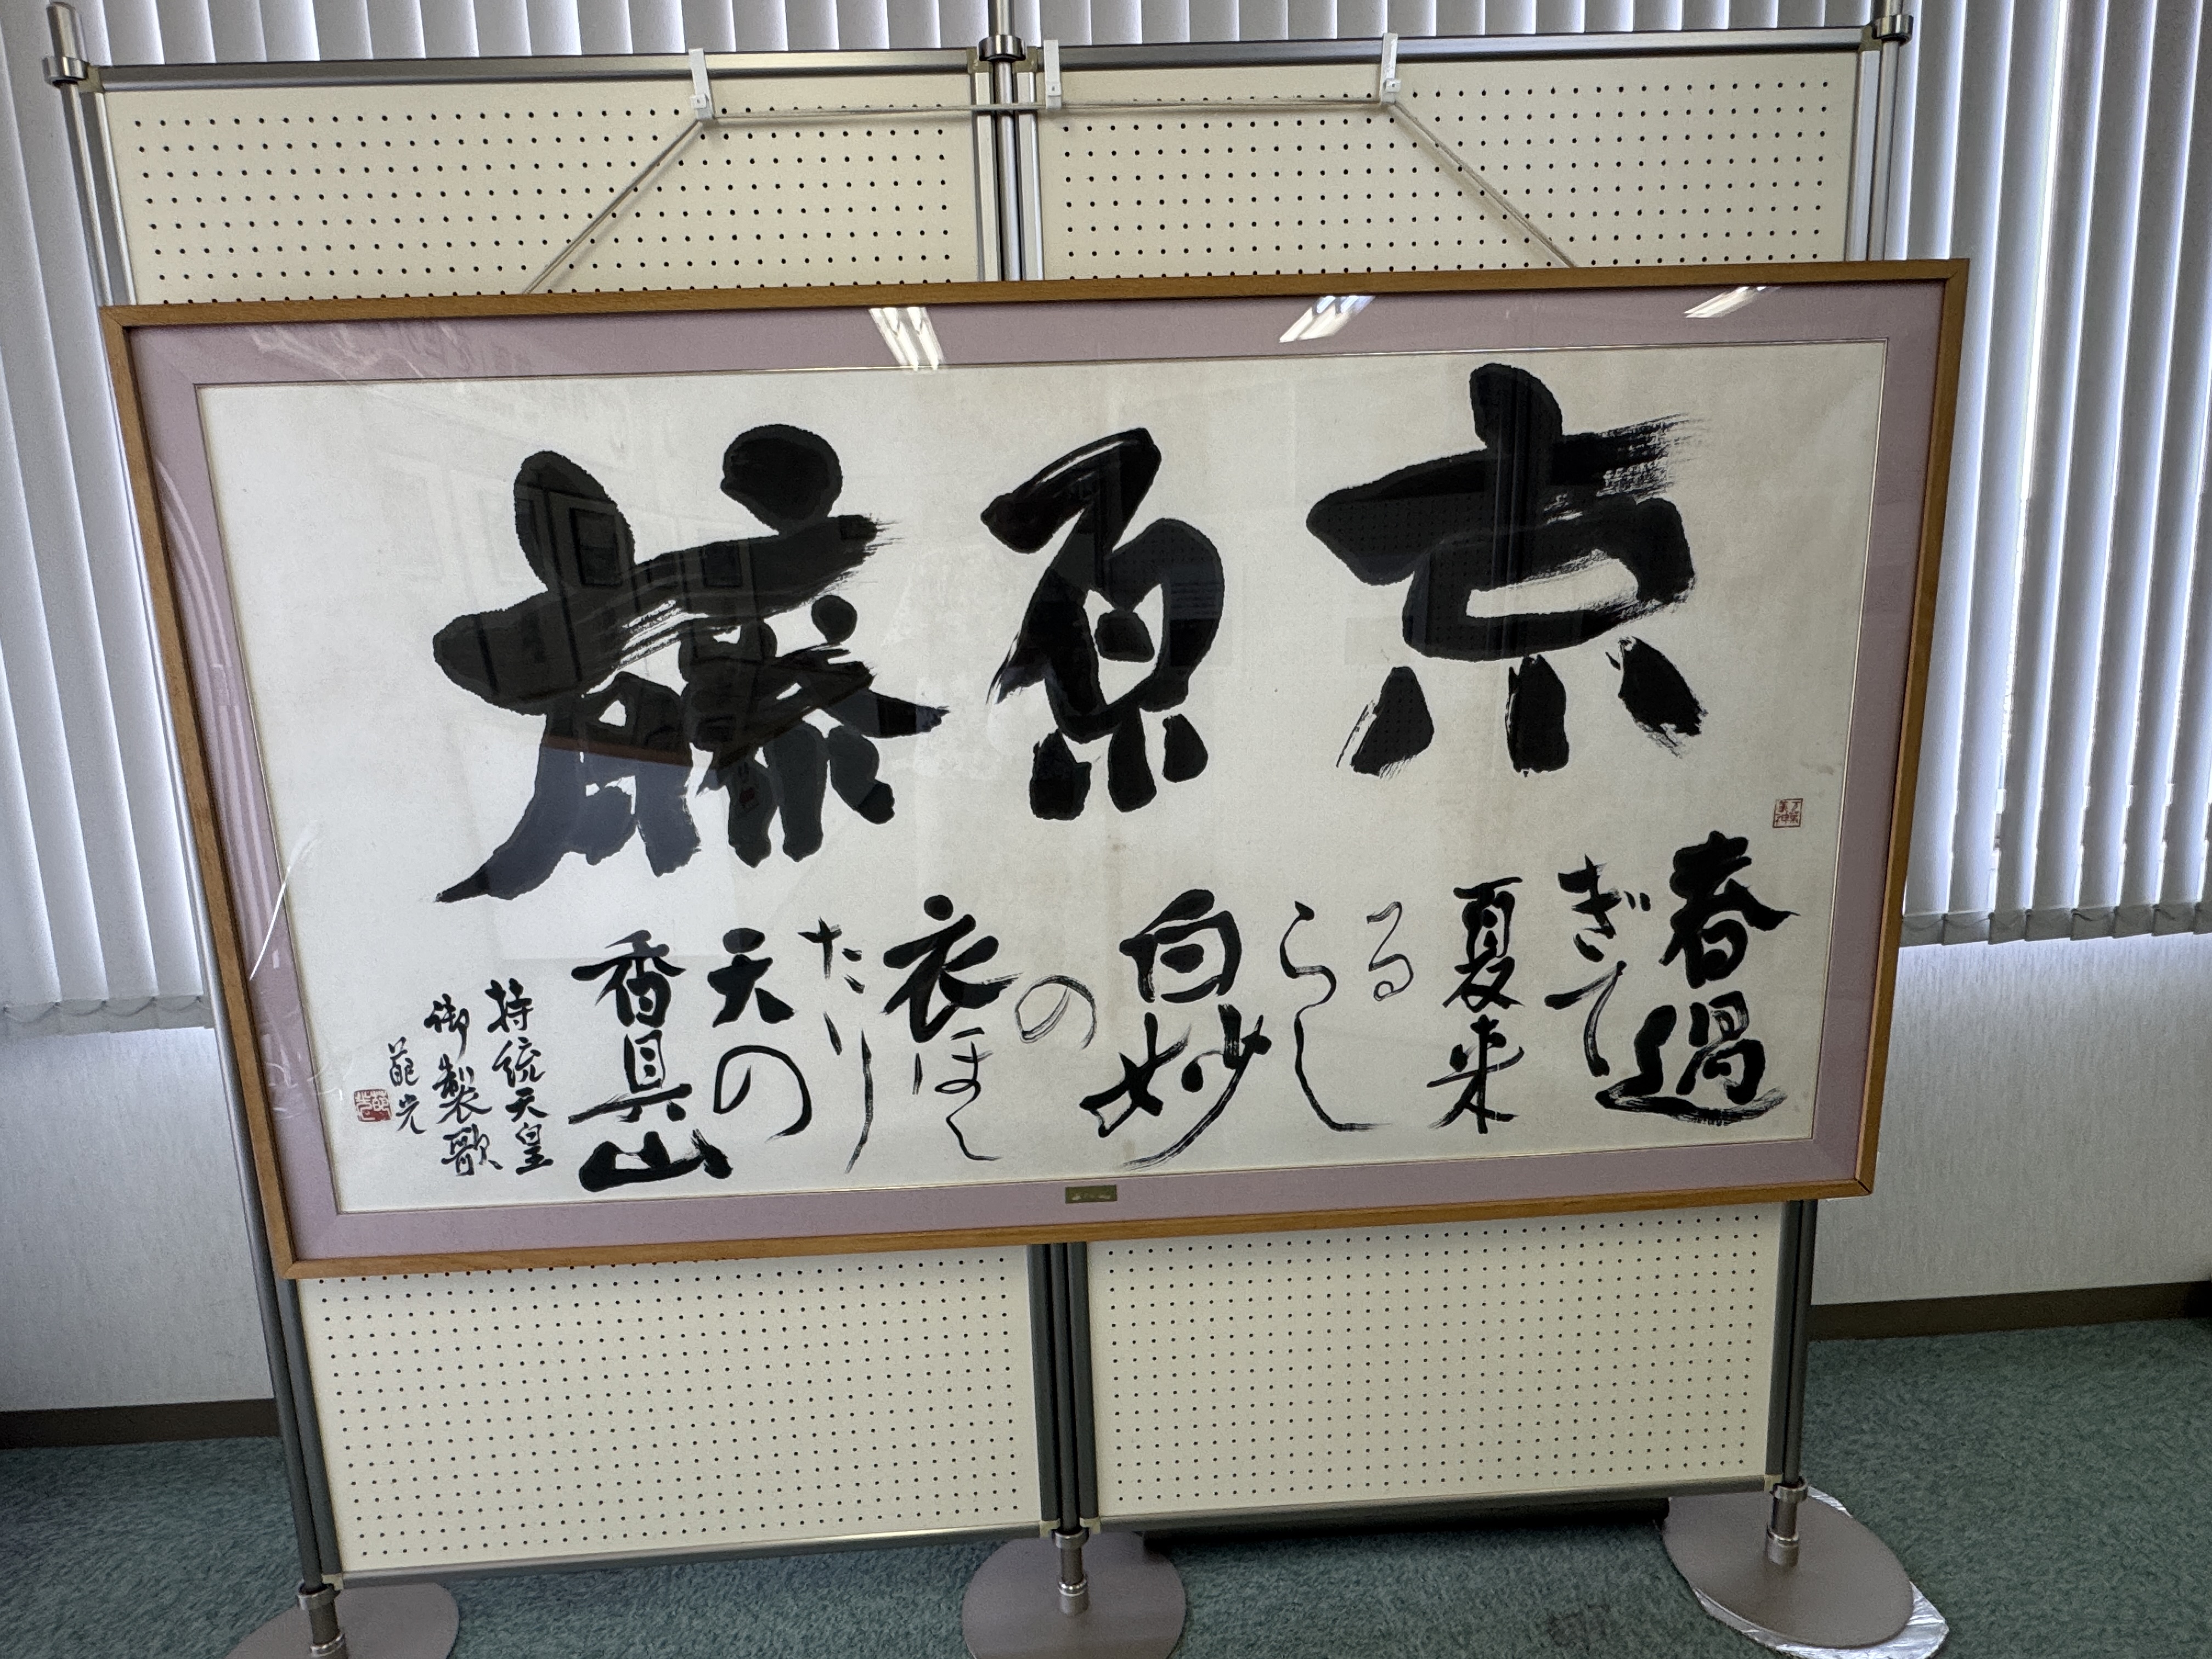 藤原京
春過
ぎて
夏来
る
らし
白妙
の
衣ほし
たり
天の
香具山
持統天皇
御製歌